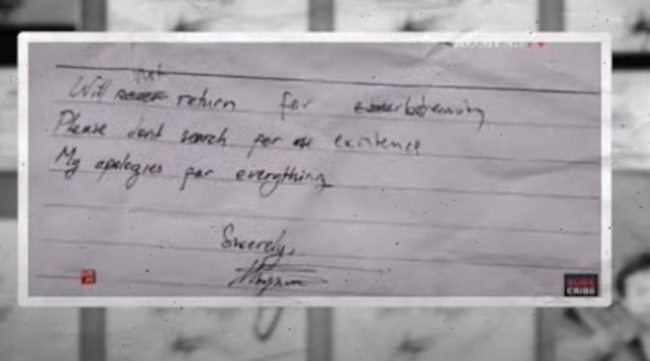 Will not return for
Please dont search for existence
My apologies for everything
Sincerely,
SUBSCRIBE